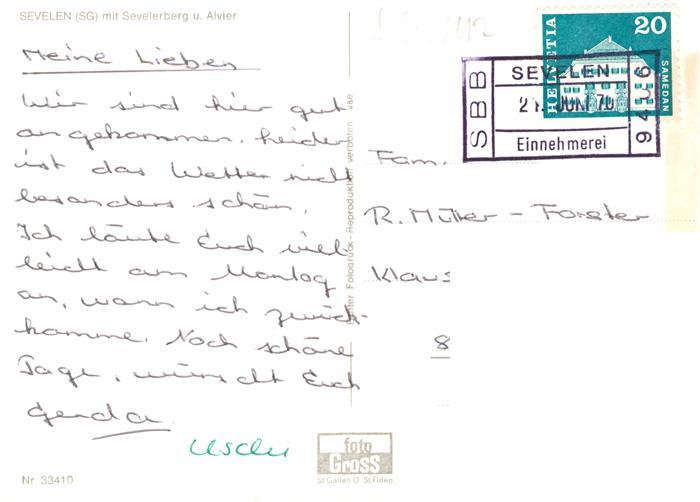 SEVELEN (SG) mit Sevelerberg u. Alvier
Meine Lieben
Wir sind hier gut
angekommen, leider
ist das Wetter nicht
besonders schön.
Ich läute Euch viel-
leicht am Montag
an, wann ich zurück-
komme. Noch schöne
Tage, wünscht Euch
Gerda
Uschi
Nr. 33410
Foto Gross
St Gallen O St Fiden
Fotodruck - Reproduktion verboten
HELVETIA
20
SAMEDAN
SBB
SEVELEN
21. JUNI 70
Einnehmerei
9406
Fam.
R. Müller - Forster
Klaus
8